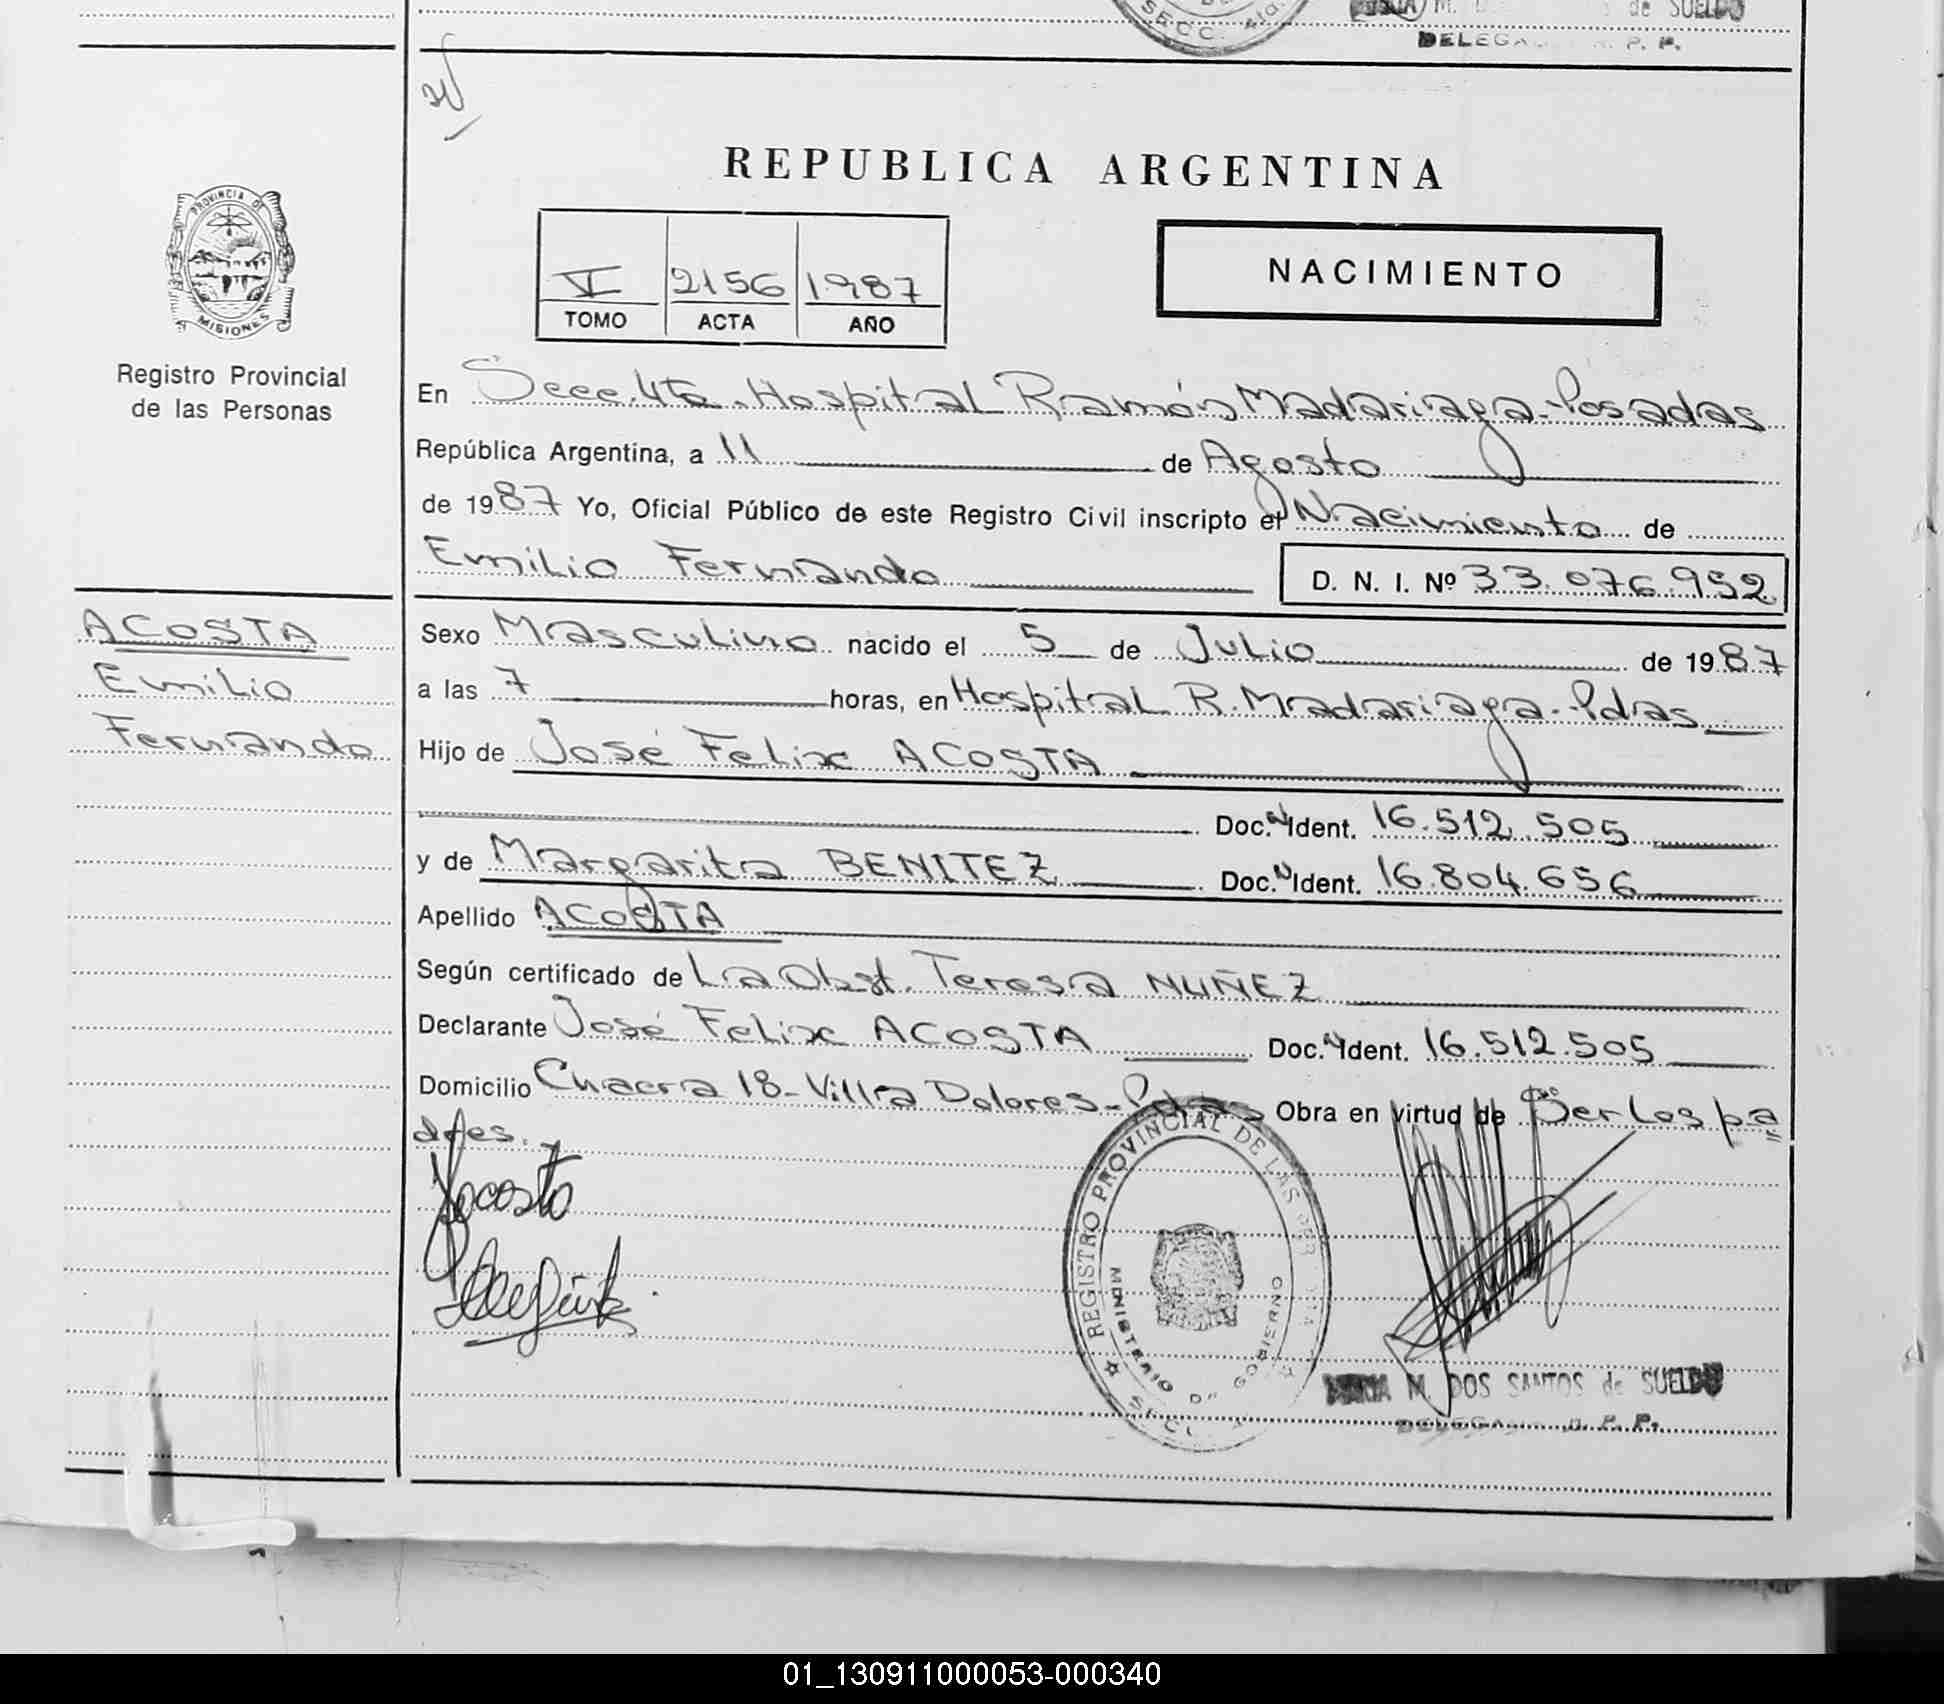 de SUELDO
SECC. 4ta.
DELEGA R. P. P.
REPUBLICA ARGENTINA
PROVINCIA DE
MISIONES
Registro Provincial
de las Personas
V 2156 1987
TOMO ACTA AÑO
NACIMIENTO
En Secc. 4ta. Hospital Ramón Madariaga-Posadas
República Argentina, a 11 de Agosto
de 1987 Yo, Oficial Público de este Registro Civil inscripto el Nacimiento de
Emilio Fernando D. N. I. Nº 33.076.952
ACOSTA
Emilio
Fernando
Sexo Masculino nacido el 5 de Julio de 1987
a las 7 horas, en Hospital R. Madariaga-Pdas
Hijo de José Felix ACOSTA
Doc. N Ident. 16.512.505
y de Margarita BENITEZ Doc. N Ident. 16.804.656
Apellido ACOSTA
Según certificado de La Obst. Teresa NUÑEZ
Declarante José Felix ACOSTA Doc. N Ident. 16.512.505
Domicilio Chacra 18-Villa Dolores-Pdas Obra en virtud de Ser Los pa
dres.
Acosta
REGISTRO PROVINCIAL DE LAS PERSONAS
MINISTERIO DE GOBIERNO
SECC. 4ta.
MARIA M. DOS SANTOS de SUELDO
DELEGADA R. P. P.
01_130911000053-000340